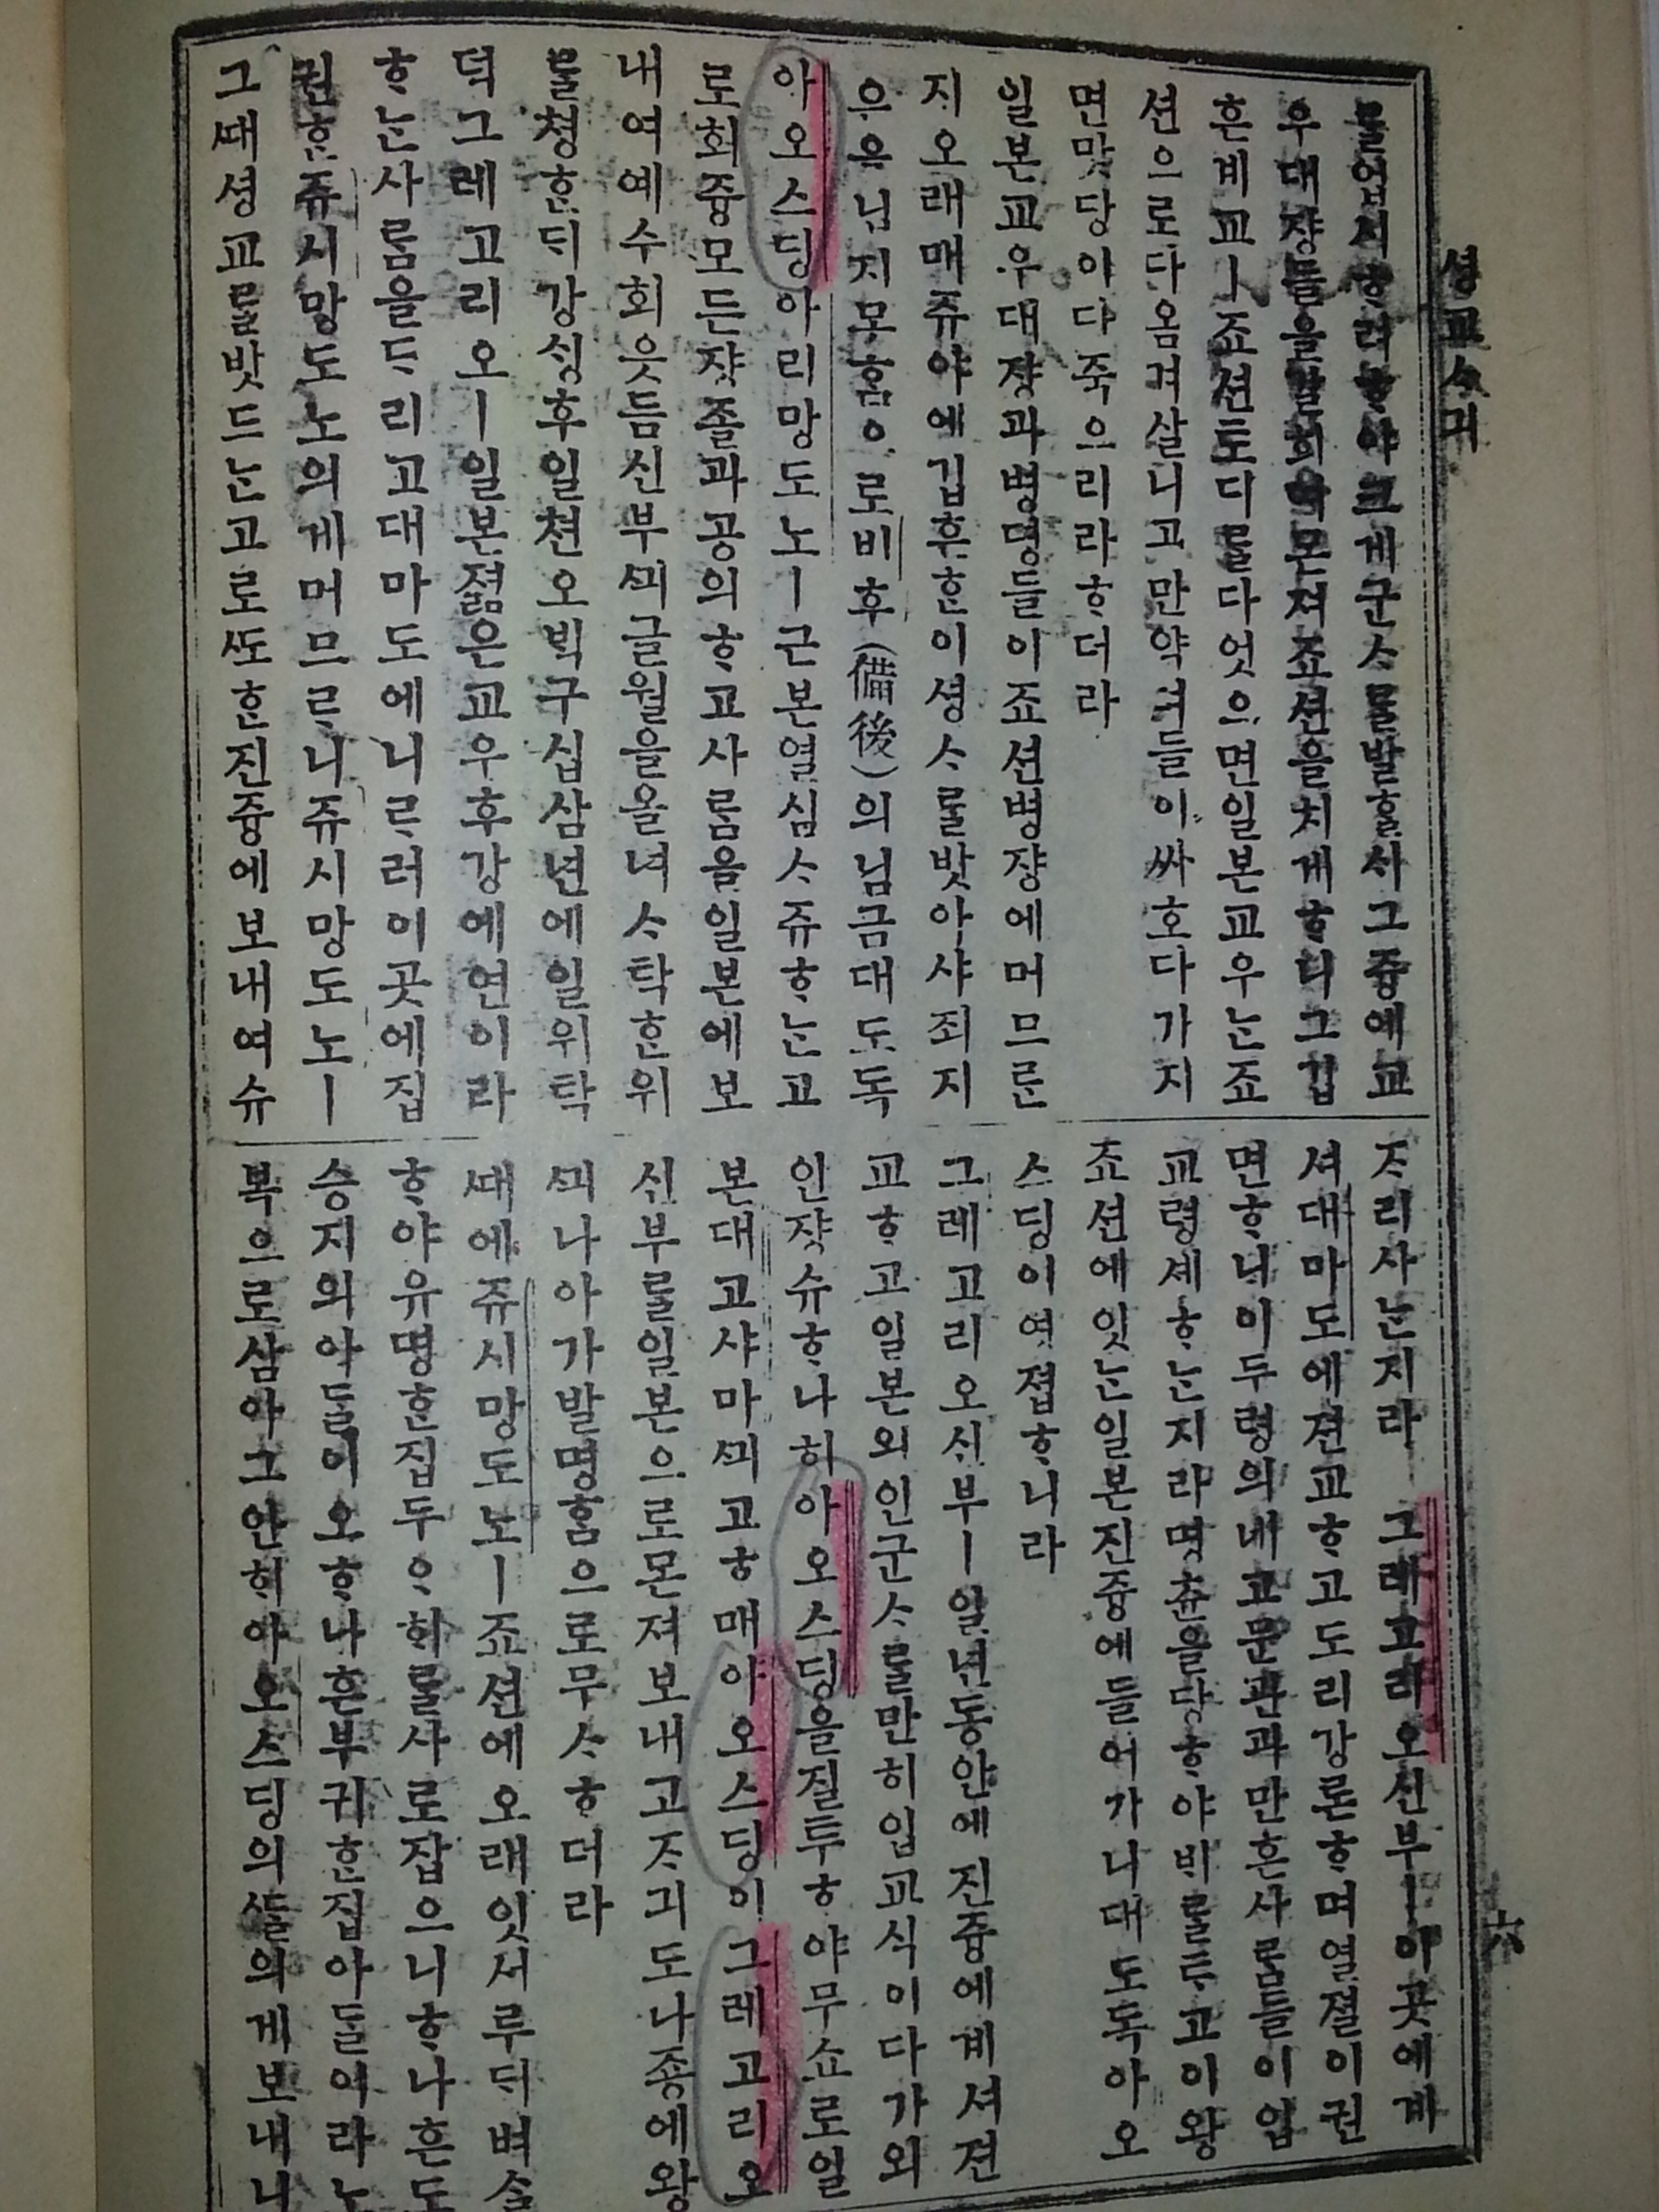 셩교ᄉᆞ긔
ᄅᆞᆯ업시ᄒᆞ려ᄒᆞ야크게군ᄉᆞᄅᆞᆯ발ᄒᆞᆯᄉᆡ그즁에교
우대쟝들을ᄀᆞᆯ희여몬져죠션을치게ᄒᆞ니그깁
흔계교ㅣ죠션도디ᄅᆞᆯ다엇으면일본교우ᄂᆞᆫ죠
션으로다옴겨살니고만약져들이싸호다가지
면맛당이다죽으리라ᄒᆞ더라
일본교우대쟝과병명들이죠션병쟝에머므른
지오래매쥬야에깁흔이셩ᄉᆞᄅᆞᆯ밧아샤죄지
으유닙지못ᄒᆞᆷᄋᆞ로비후(備後)의님금대도독
아오스딩아리망도노ㅣ근본열심ᄉᆞ쥬ᄒᆞᄂᆞᆫ고
로회즁모든쟝졸과공의ᄒᆞ고사ᄅᆞᆷ을일본에보
내여예수회읏듬신부ᄭᅴ글월을올녀ᄉᆞ탁ᄒᆞᆫ위
ᄅᆞᆯ쳥ᄒᆞᆫᄃᆡ강ᄉᆡᆼ후일쳔오ᄇᆡᆨ구십삼년에일위탁
덕그레고리오ㅣ일본졂은교우후강에연이라
ᄒᆞᄂᆞᆫ사ᄅᆞᆷ을ᄃᆞ리고대마도에니ᄅᆞ러이곳에집
권ᄒᆞᆫ쥬시망도노의게머므ᄅᆞ니쥬시망도노ㅣ
그ᄯᅢ셩교ᄅᆞᆯ밧드ᄂᆞᆫ고로ᄯᅩᄒᆞᆫ진즁에보내여슈
ᄌᆞ리사ᄂᆞᆫ지라그레고리오신부ㅣ이곳에계
셔대마도에젼교ᄒᆞ고도리강론ᄒᆞ며열졀이권
면ᄒᆞ니이두령의네고문관과만흔사ᄅᆞᆷ들이입
교령셰ᄒᆞᄂᆞᆫ지라명츈을당ᄒᆞ야ᄇᆡᄅᆞᆯᄐᆞ고이왕
죠션에잇ᄂᆞᆫ일본진즁에들어가니대도독아오
스딩이영졉ᄒᆞ니라
그레고리오신부ㅣ일년동안에진즁에계셔젼
교ᄒᆞ고일본외인군ᄉᆞᄅᆞᆯ만히입교식이다가외
인쟝슈ᄒᆞ나히아오스딩을질투ᄒᆞ야무쇼로일
본대고샤마ᄭᅴ고ᄒᆞ매아오스딩이그레고리오
신부ᄅᆞᆯ일본으로몬져보내고ᄌᆞ긔도나죵에왕
ᄭᅴ나아가발명ᄒᆞᆷ으로무ᄉᆞᄒᆞ더라
ᄯᅢ에쥬시망도노ㅣ죠션에오래잇서두ᄃᆡ벼ᄉᆞᆯ
ᄒᆞ야유명ᄒᆞᆫ집두ᄋᆞ희ᄅᆞᆯ사로잡으니ᄒᆞ나흔도
승지의아ᄃᆞᆯ이오ᄒᆞ나흔부귀ᄒᆞᆫ집아ᄃᆞᆯ이라노
복으로삼아그안ᄒᆡ아오스딩의ᄯᆞᆯ의게보내니
六